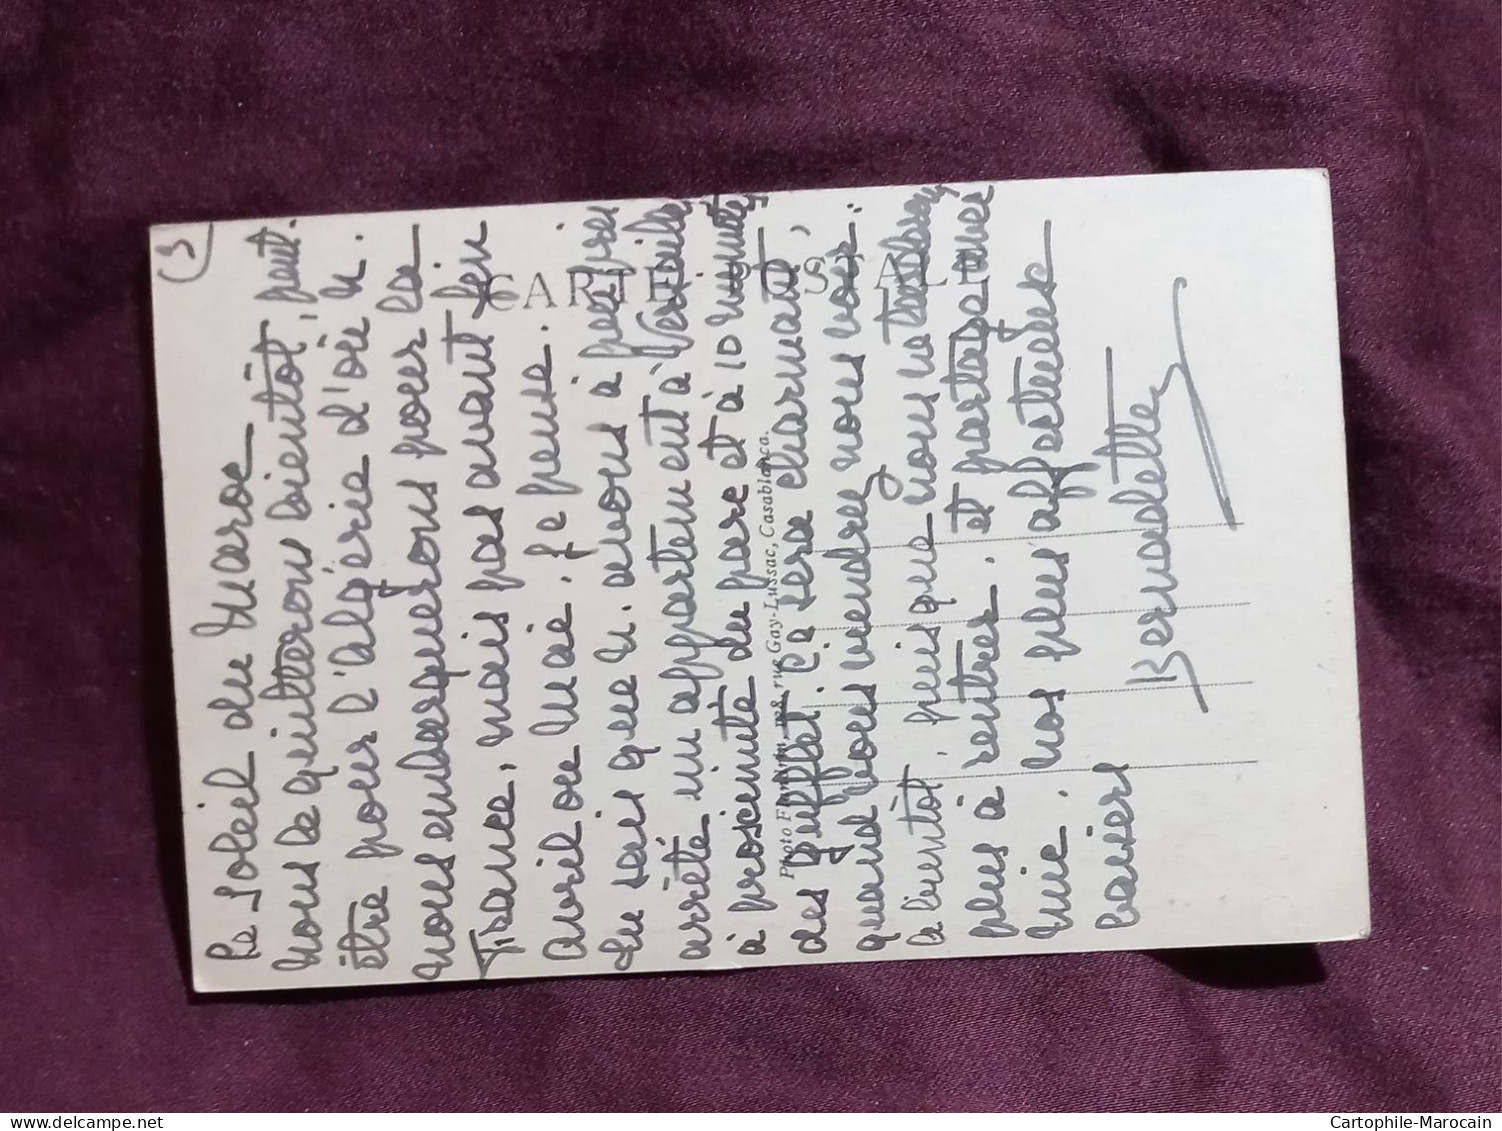 (3)
le soleil du Maroc
Nous le quitterons bientôt, peut-
être pour l'algérie d'où n.
nous embarquerons pour la
France, mais pas avant fin
avril ou Mai. je pense.
tu sais que n. avons à peu près
arrêté un appartement à Versailles
à proximité du parc et à 10 minutes
des Buffet. Ce sera charmant,
quand vous viendrez nous voir.
à bientôt, puisque nous ne tarderons
plus à rentrer. et partage avec
Mie. nos plus affectueux
baisers
Bernadette
CARTE POSTALE
Photo Flandrin, rue Gay-Lussac, Casablanca.
Cartophile-Marocain
delcampe.net